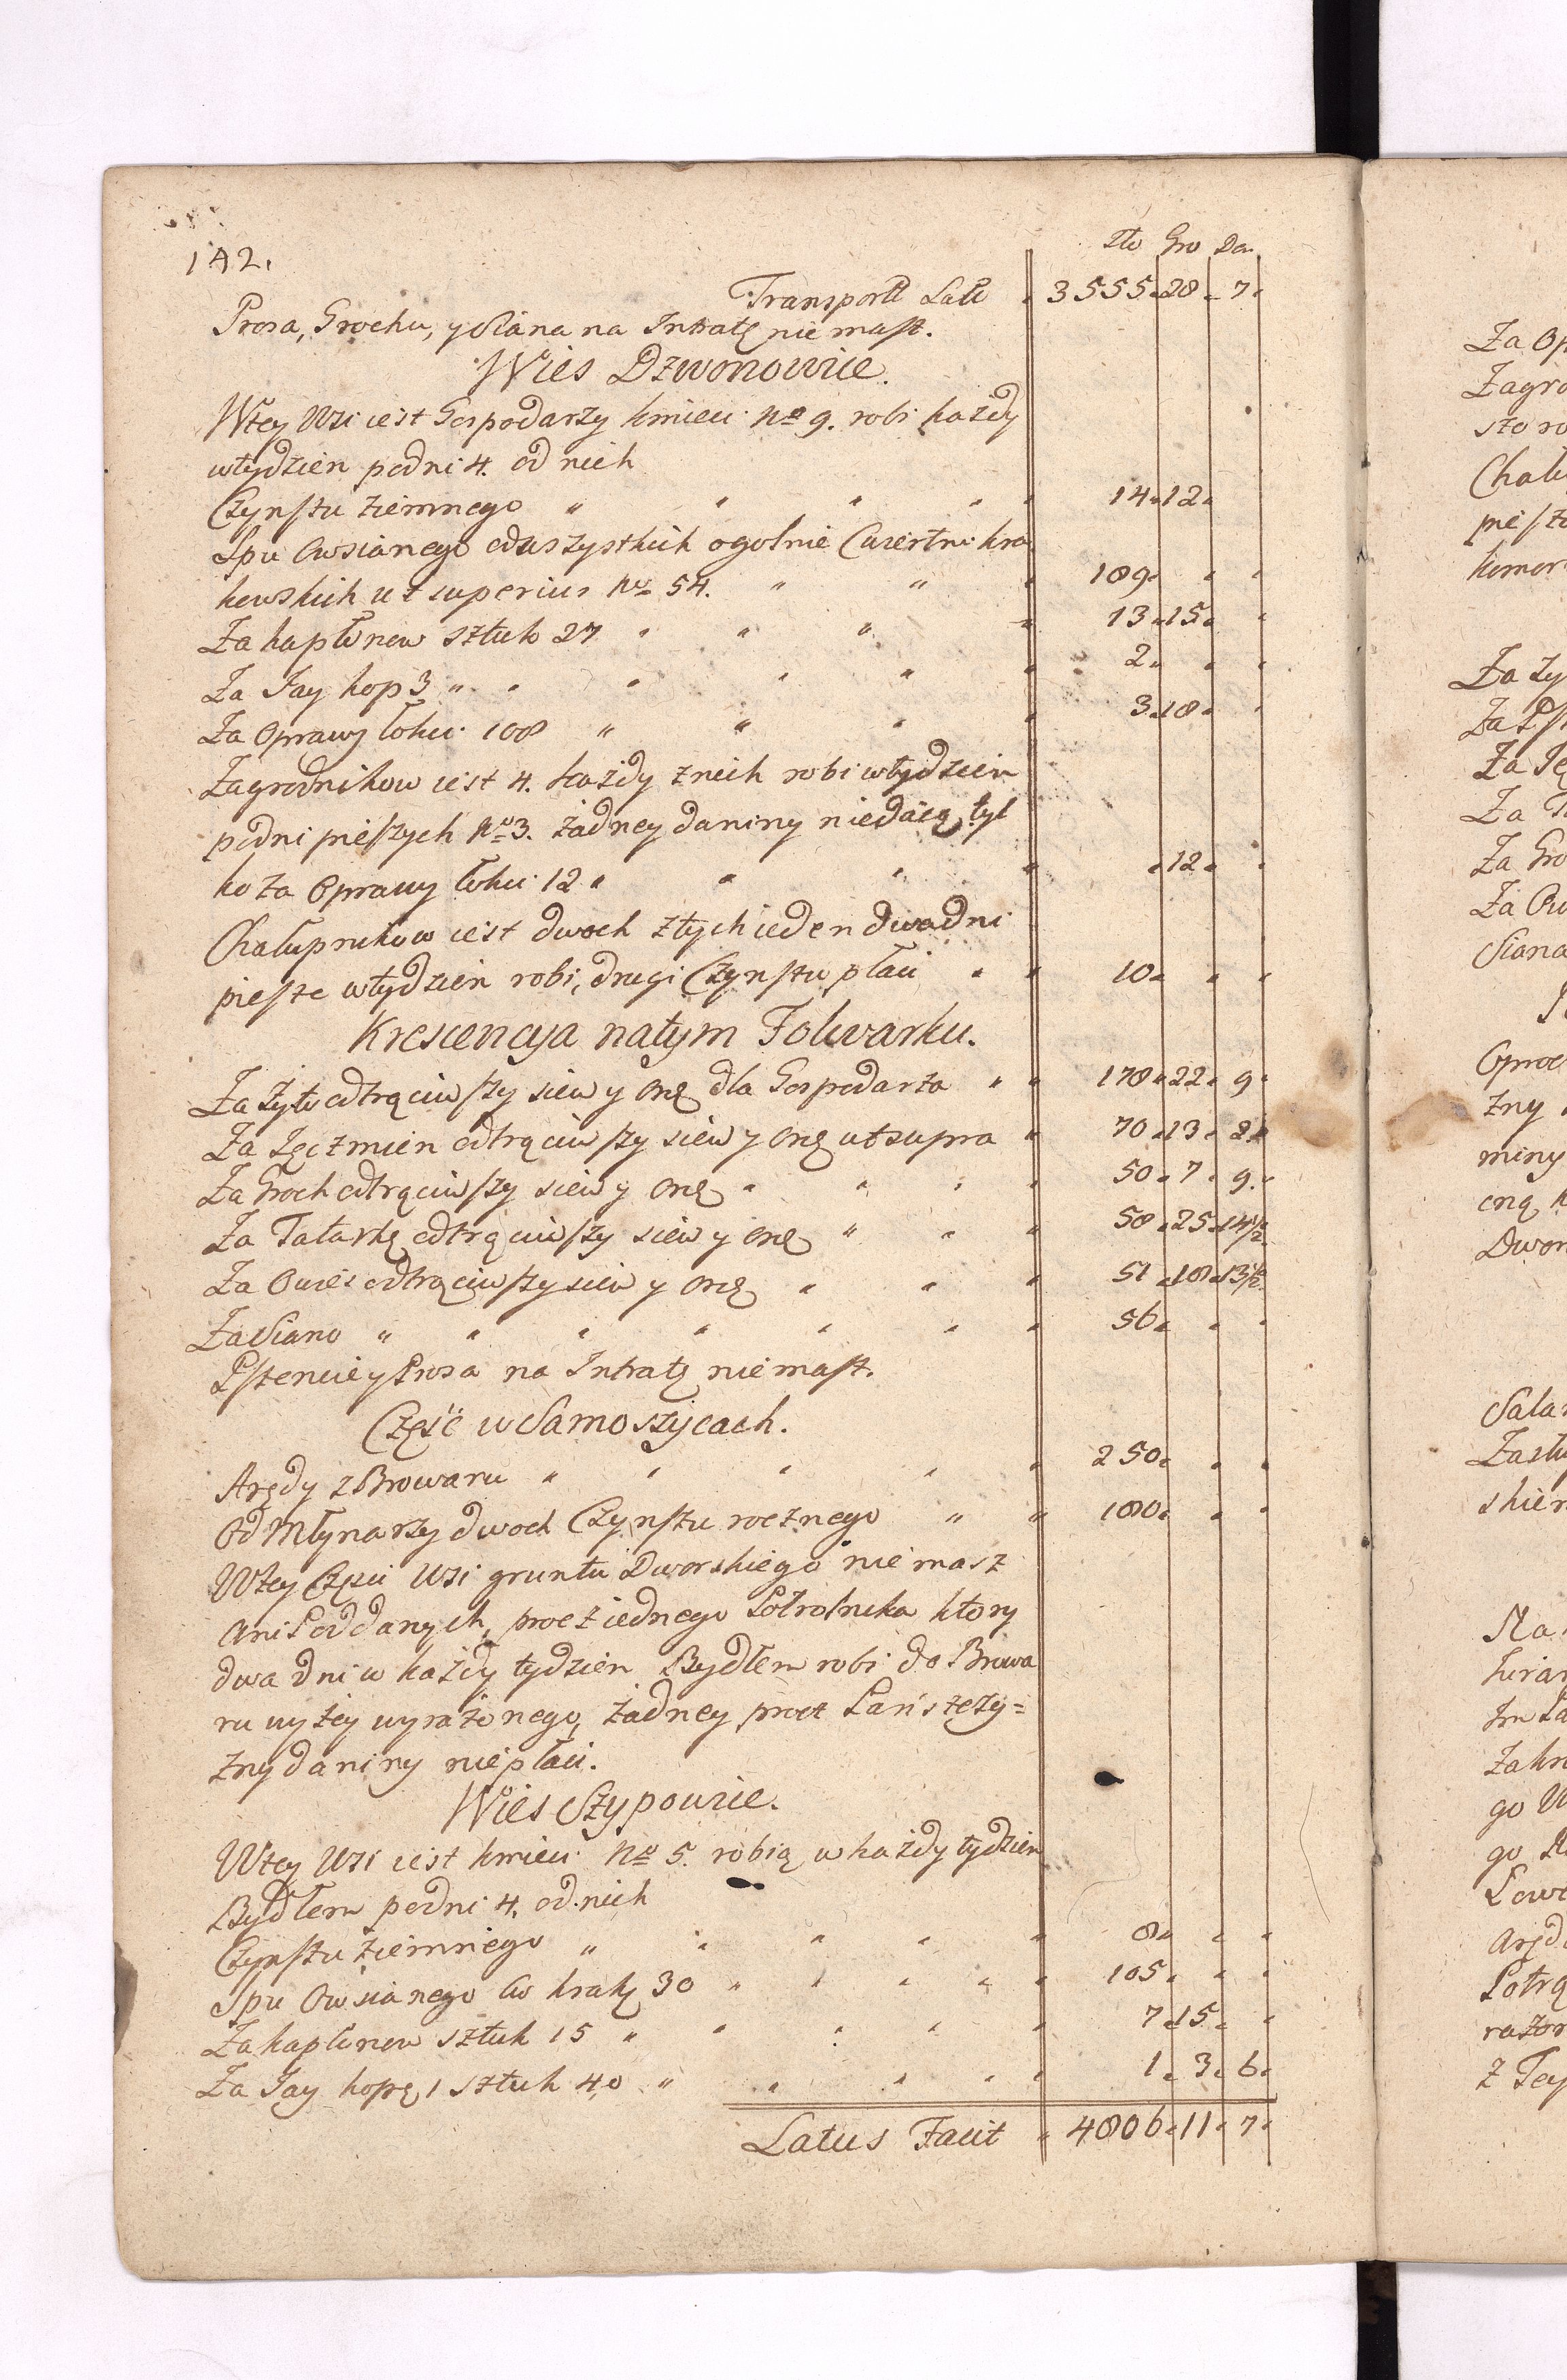 142.
Zło Gro Den.
Transport Lat. 3555. 28. 7.
Prosa, Grochu, y Siana na Intratę nie masz.
Wies Dzwonowice.
Wtey Wsi iest Gospodarzy kmieci Nro 9. robi każdy
wtydzien podni 4. od nich
Czynszu ziemnego " " " " " 14. 12.
Sypu Owsianego odwszystkich ogolnie Cwiertni kra
kowskich ut superius Nro 54. " " " 189. " "
Za kapłonow sztuk 27 " " " " 13. 15. "
Za Jay kop 3 " " " " " " 2. " "
Za Oprawy łokci 108 " " " " 3. 18. "
Zagrodnikow iest 4. każdy znich robi wtydzien
podni pieszych Nro 3. żadney daniny niedaią tyl
ko za Oprawy łokci 12 " " " " " 12. "
Chałupnikow iest dwoch ztych ieden dwa dni
piesze wtydzien robi, drugi Czynszu płaci " " 10. " "
Krescencya natym Folwarku.
Za żyto odtrąciwszy siew y Orę dla Gospodarza " " 178. 22. 9.
Za Jęczmien odtrąciwszy siew y Orę utsupra " 70. 13.
Za Groch odtrąciwszy siew y Orę " " " " 50. 7. 9.
Za Tatarkę odtrąciwszy siew y Orę " " " 58. 25. 14½
Za Owies odtrąciwszy siew y Orę " " " 51. 18. 13½
Za Siano " " " " " " " 56. " "
Pszenicy y Prosa na Intratę nie masz.
Część w Samoszycach.
Arędy z Browaru " " " " " 250. " "
Od Młynarzy dwoch Czynszu rocznego " " 180. " "
Wtey Częsci Wsi gruntu Dworskiego nie masz
ani Poddanych, procz iednego Połrolnika ktory
dwa dni w każdy tydzien Bydłem robi do Browa
ru wyżey wyrażonego, żadney procz Pańszczy=
zny daniny niepłaci.
Wies Szypowice.
Wtey Wsi iest kmieci Nro 5. robią w każdy tydzien
Bydłem podni 4. od nich
Czynszu ziemnego " " " " " 8. " "
Sypu Owsianego Cw krak. 30 " " " " " 105. " "
Za kapłonow sztuk 15 " " " " " 7. 15. "
Za Jay kopę 1 sztuk 40 " " " " " 1. 3. 6.
Latus Facit " 4806. 11. 7.
Za
Zagro
Chału
Za
Za
Za
Za
Za
Za
Siana
zny
miny
Dwor
go
go
z